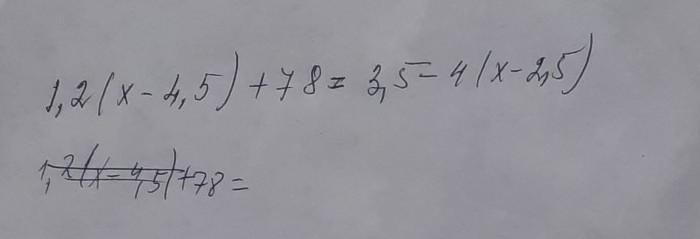 1,2(x-4,5)+78=3,5-4(x-2,5)
1,2(x-4,5)+78=